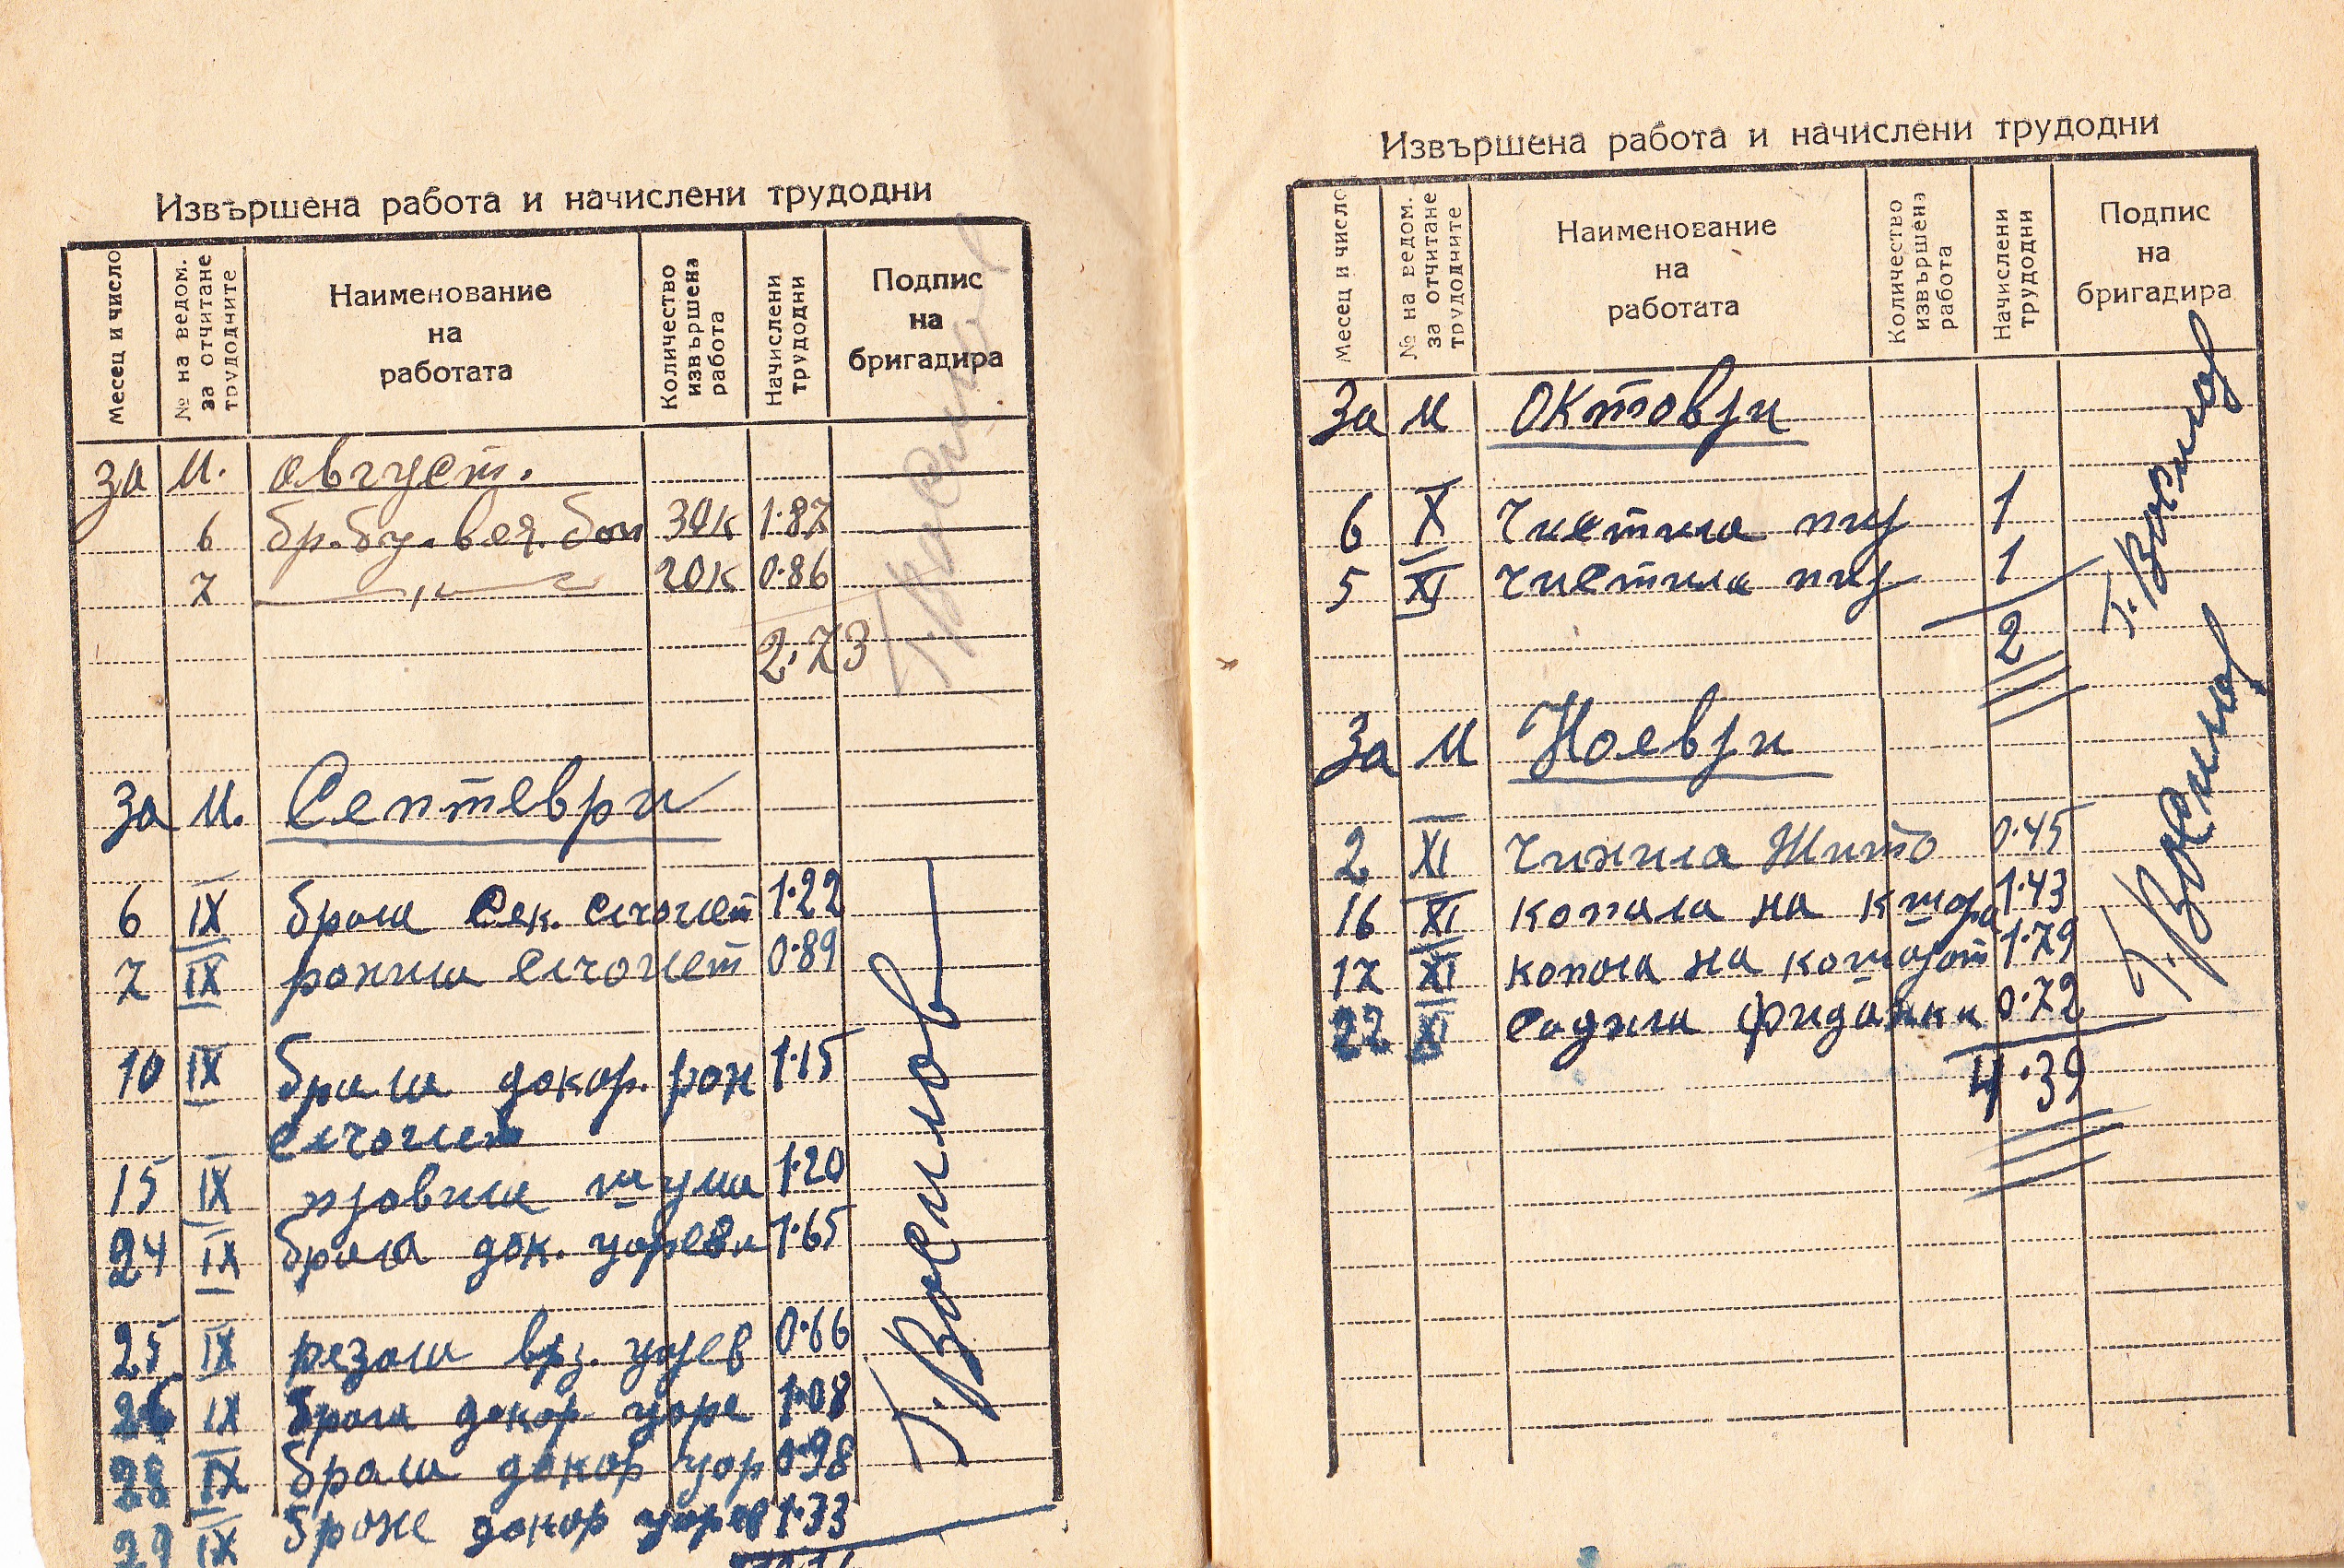 Извършена работа и начислени трудодни
Месец и число
№ на ведом. за отчитане трудодните
Наименование на работата
Количество извършена работа
Начислени трудодни
Подпис на бригадира
за м. август.
6 бр. бу. вег. 30к 1·87
7 —„— 20к 0·86
2·73
За м. Септеври
6 IX брала сек. слчоглет 1·22
7 IX ронила слчоглет 0·89
10 IX брала докар. рон 1·15
слчоглет
15 IX шума 1·20
24 IX брала док. цареви 1·65
25 IX резала царев 0·66
26 IX брала докар царе 1·08
28 IX брала докар цар 0·98
29 IX докар царев 1·33
Г. Василов
Извършена работа и начислени трудодни
Месец и число
№ на ведом. за отчитане трудодните
Наименование на работата
Количество извършена работа
Начислени трудодни
Подпис на бригадира
За м Октоври
6 X Чистила 1
5 XI Чистила 1
2
Г. Василов
За м Ноеври
2 XI Чинила Жито 0·45
16 XI копала на 1·43
17 XI копала на 1·79
22 XI садила фиданки 0·72
4·39
Г. Василов